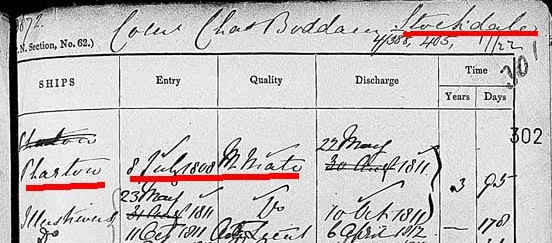 Colin Chas Boddam Stockdale
N. Section, No. 62.) 4/388, 405, 11/22
301
SHIPS Entry Quality Discharge Time
Years Days
302
22 May
Phaeton 8 July 1808 M Mate 30 Augt 1811 3 95
23 May
Illustrious 31 Augt 1811 Do 10 Oct 1811
Do 11 Oct 1811 Lieut 6 April 1812 — 178